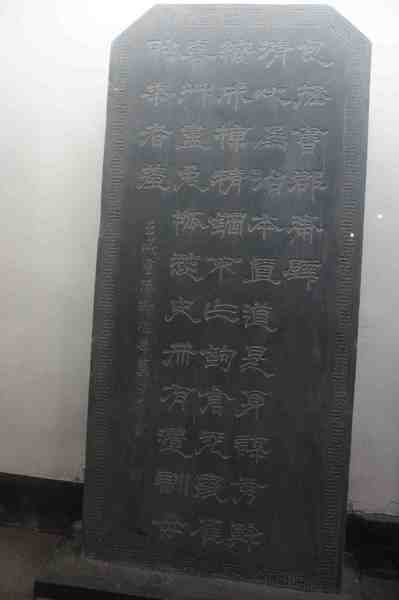 包拯書郡齋壁
清心爲治本直道是身謀秀榦
終成棟精鋼不作鉤倉充鼠雀
喜艸盡兔狐愁史冊有遺訓毋
貽來者羞